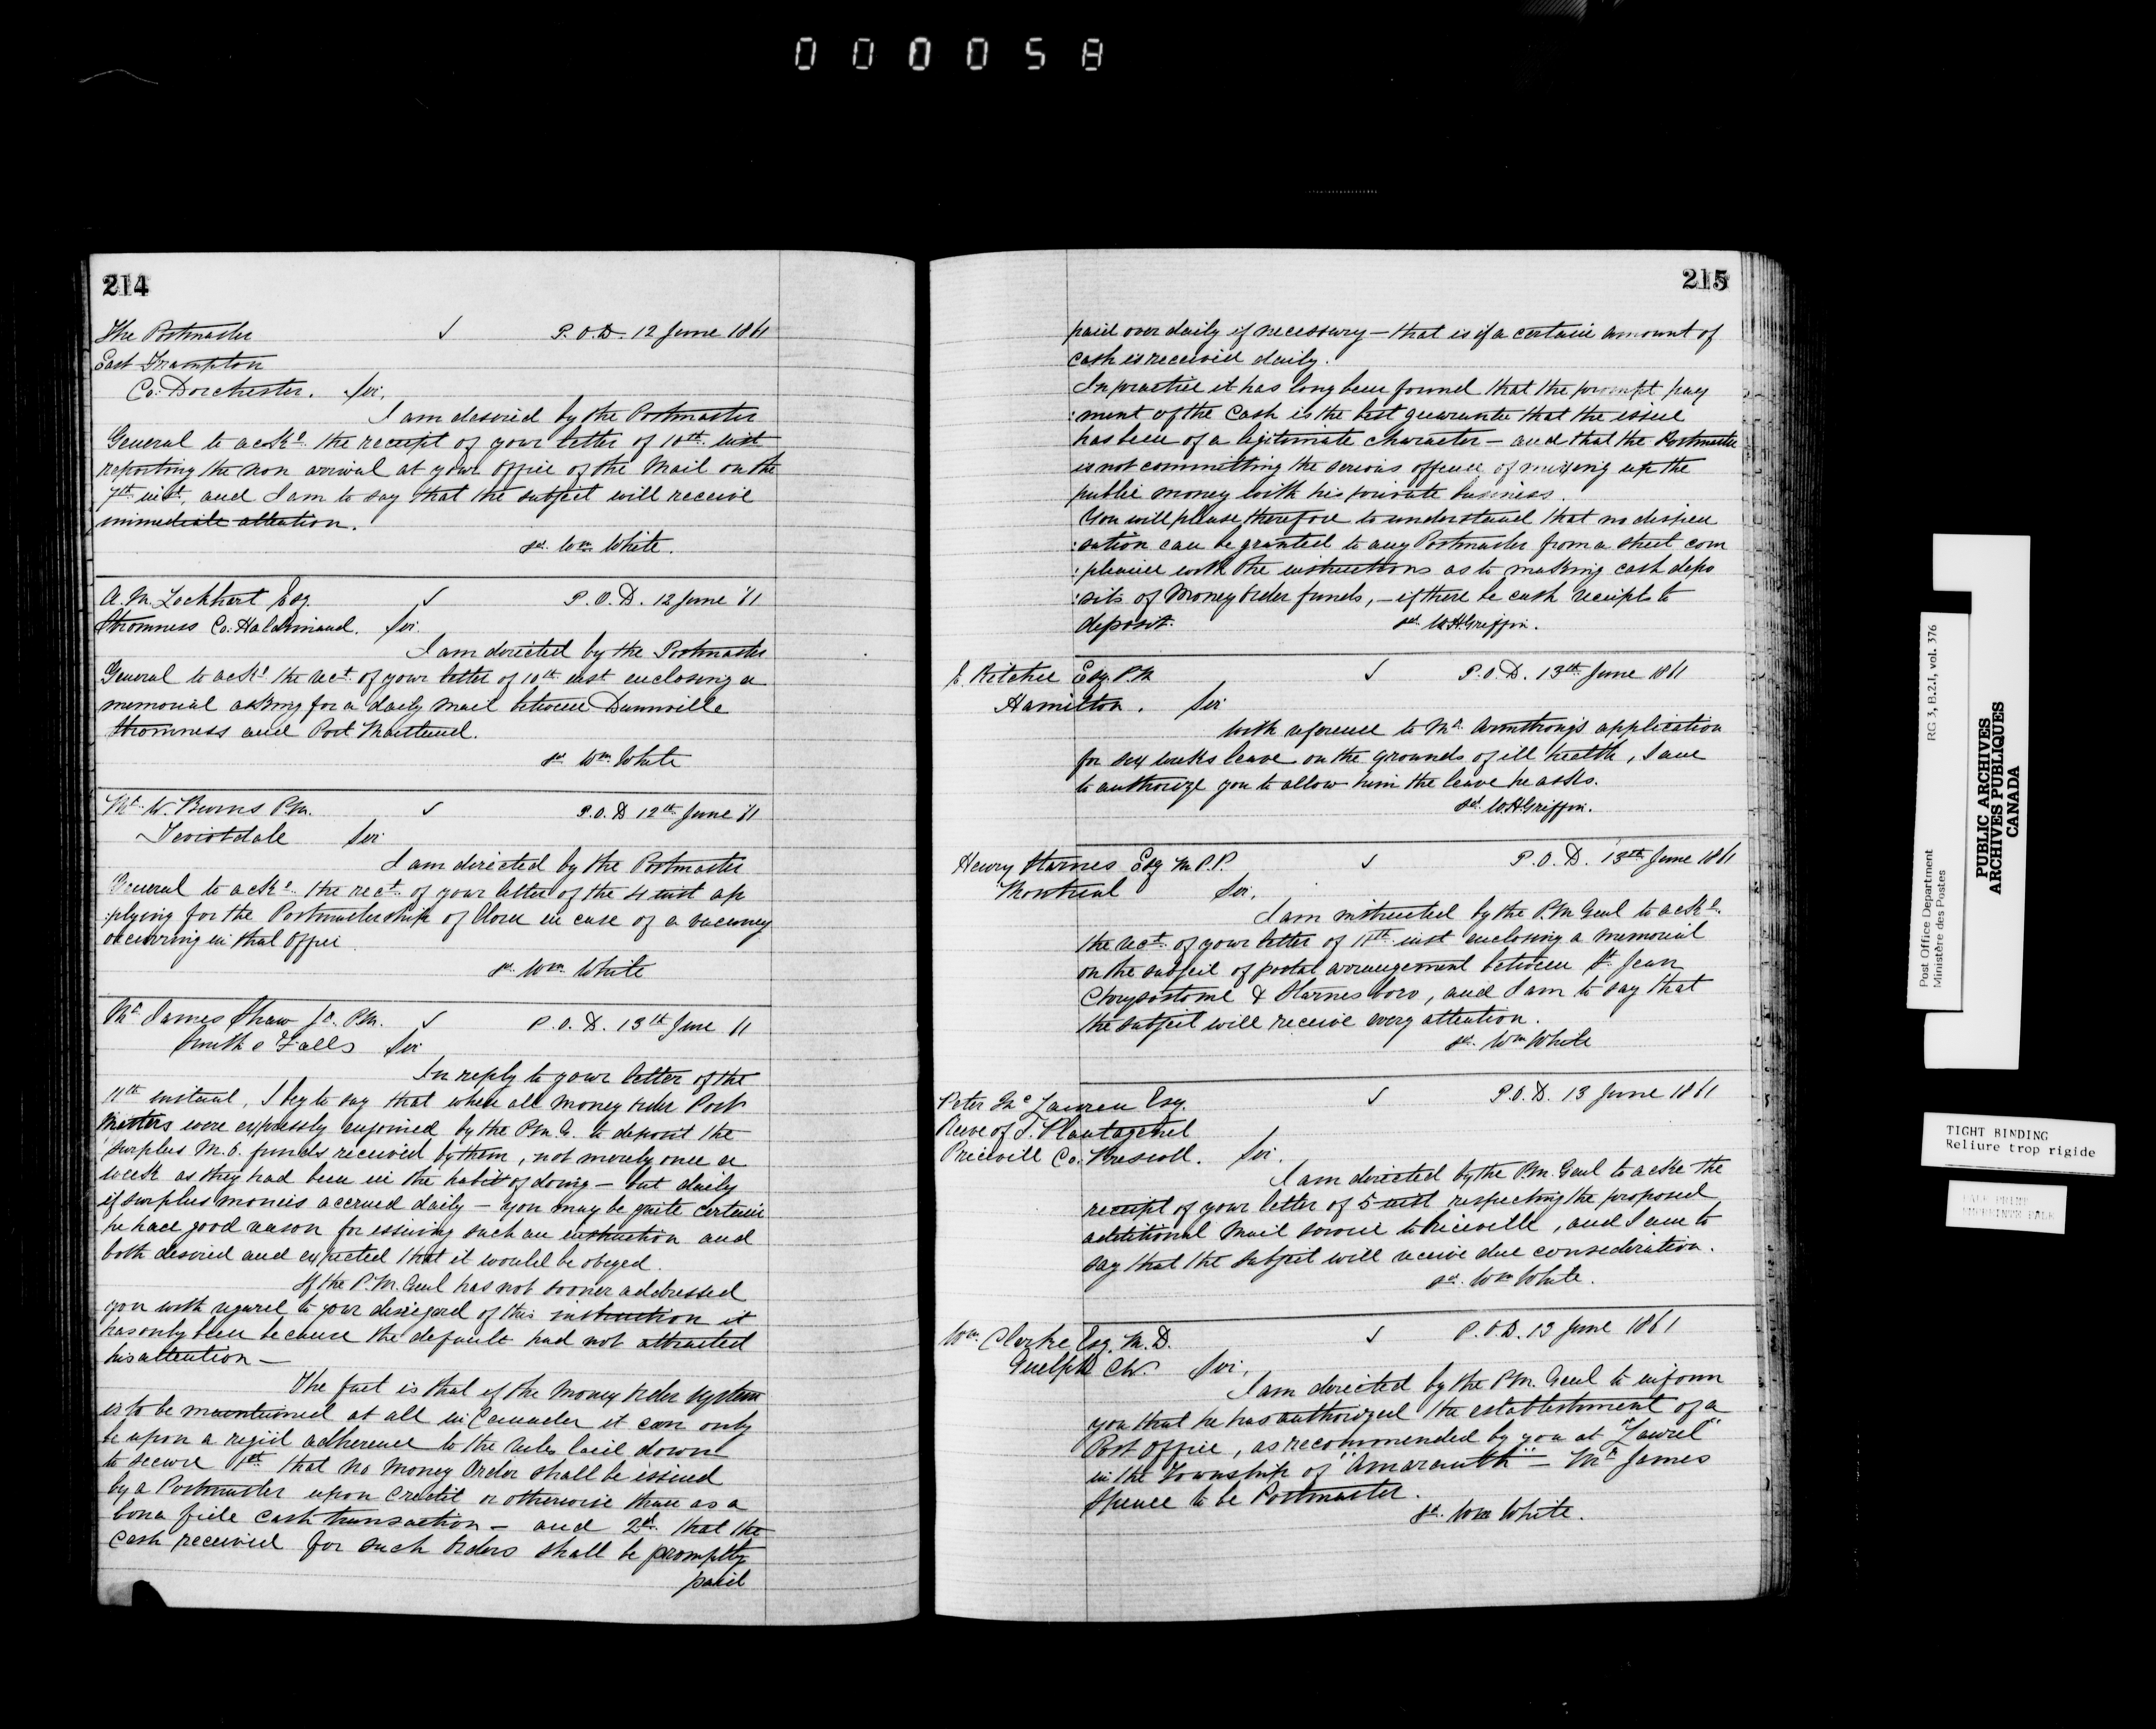 000058
214
The Postmaster ✓ P.O.D. 12 June 1861
East Frampton
Co: Dorchester. Sir,
I am desired by the Postmaster
General to acke. the receipt of your letter of 10th inst
reporting the non arrival at your office of the Mail on the
7th inst, and I am to say that the subject will receive
immediate attention.
sd. Wm White.
A. M. Lockhart Esq. ✓ P.O.D. 12 June '61
Stromness Co. Haldimand. Sir.
I am directed by the Postmaster
General to acke. the rect. of your letter of 10th inst enclosing a
memorial asking for a daily mail between Dunnville
Stromness and Port Maitland.
sd. Wm White
Mr. W. Burns P.M. ✓ P.O.D 12th June '61
Teviotdale Sir
I am directed by the Postmaster
General to acke. the rect. of your letter of the 4 inst ap
:plying for the Postmastership of Clora in case of a vacancy
occurring in that office.
sd. Wm White
Mr. James Shaw Jr. P.M. ✓ P.O.D. 13th June 61
Smith's Falls Sir
In reply to your letter of the
11th instant, I beg to say that when all money order Post
Masters were expressly enjoined by the P.M.G. to deposit the
surplus M.O. funds received by them, not merely once a
week as they had been in the habit of doing — but daily
if surplus monies accrued daily — you may be quite certain
he had good reason for issuing such an instruction and
both desired and expected that it would be obeyed.
If the P.M. Genl has not sooner addressed
you with regard to your disregard of this instruction it
has only been because the default had not attracted
his attention —
The fact is that if the Money Order system
is to be maintained at all in Canada it can only
be upon a rigid adherence to the rules laid down
to secure 1st that no Money Order shall be issued
by a Postmaster upon credit or otherwise than as a
bona fide cash transaction — and 2d. that the
cash received for such Orders shall be promptly
paid
215
paid over daily if necessary — that is if a certain amount of
cash is received daily.
In practice it has long been found that the prompt pay
:ment of the Cash is the best guarantee that the issue
has been of a legitimate character — and that the Postmaster
is not committing the serious offence of mixing up the
public money with his private business.
You will please therefore to understand that no dispen
:sation can be granted to any Postmaster from a strict com
:pliance with the instructions as to making cash depo
:sits of Money Order funds, — if there be cash receipts to
deposit. sd. W.H. Griffin.
E. Ritchie Esq. P.M ✓ P.O.D. 13th June 1861
Hamilton. Sir
With reference to Mr. Armstrong's application
for six weeks leave on the grounds of ill health, I am
to authorize you to allow him the leave he asks.
sd. W.H. Griffin.
Henry Starnes Esq M.P.P. ✓ P.O.D. 13th June 1861
Montreal Sir,
I am instructed by the P.M. Genl to acke.
the rect. of your letter of 11th inst enclosing a memorial
on the subject of postal arrangement between St. Jean
Chrysostome & Starnesboro, and I am to say that
the subject will receive every attention.
sd. Wm White
Peter Mc Lauren Esq. ✓ P.O.D. 13 June 1861
Reeve of S. Plantagenet
Riceville Co. Prescott. Sir.
I am directed by the P.M. Genl to acke the
receipt of your letter of 5 inst respecting the proposed
additional Mail service to Riceville, and I am to
say that the subject will receive due consideration.
sd. Wm White.
Wm. Clarke Esq. M.D. ✓ P.O.D. 13 June 1861
Guelph C.W. Sir,
I am directed by the P.M. Genl to inform
you that he has authorized the establishment of a
Post Office, as recommended by you at "Laurel"
in the Township of "Amaranth" — Mr. James
Spence to be Postmaster.
sd. Wm White.
Post Office Department RG 3, B.2.I, vol. 376
Ministère des Postes
PUBLIC ARCHIVES
ARCHIVES PUBLIQUES
CANADA
TIGHT BINDING
Reliure trop rigide
PALE PRINT
EMPREINTE PALE